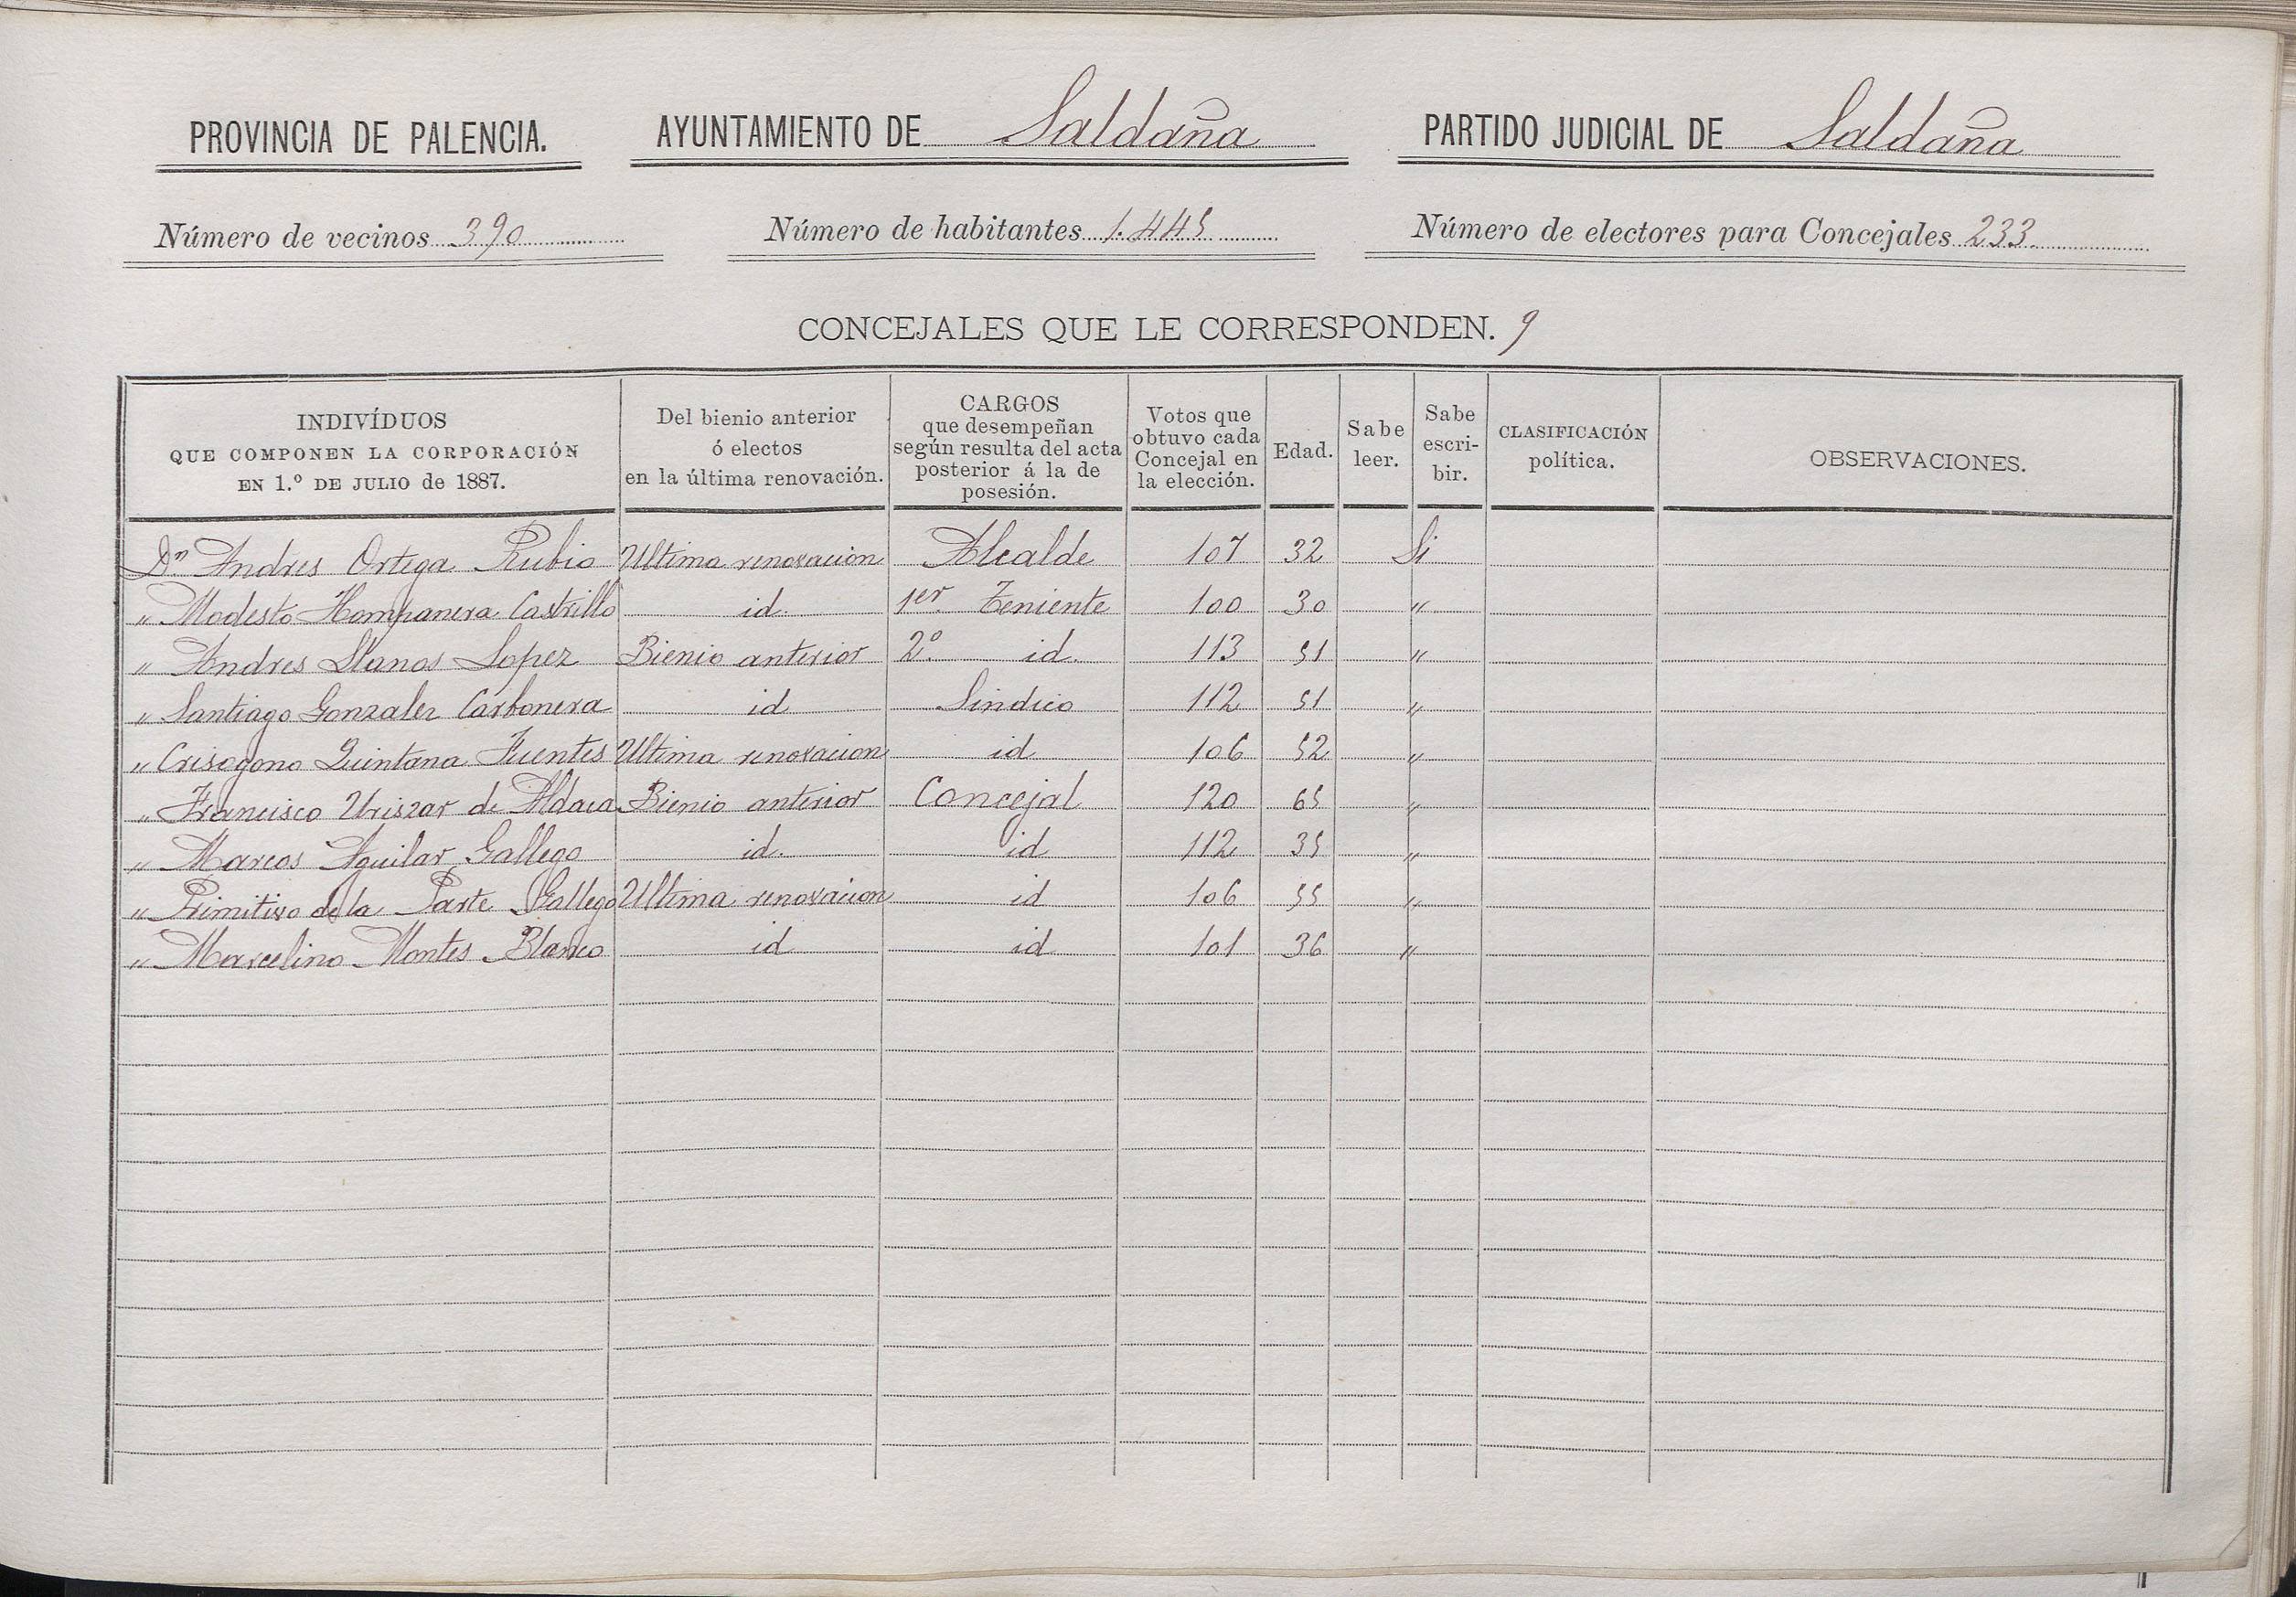 PROVINCIA DE PALENCIA. AYUNTAMIENTO DE Saldaña PARTIDO JUDICIAL DE Saldaña
Número de vecinos 390 Número de habitantes 1.445 Número de electores para Concejales 233.
CONCEJALES QUE LE CORRESPONDEN. 9
INDIVÍDUOS QUE COMPONEN LA CORPORACIÓN EN 1.º DE JULIO de 1887. Del bienio anterior ó electos en la última renovación. CARGOS que desempeñan según resulta del acta posterior á la de posesión. Votos que obtuvo cada Concejal en la elección. Edad. Sabe leer. Sabe escri- bir. CLASIFICACIÓN política. OBSERVACIONES.
Dn Andres Ortega Rubio Ultima renovacion Alcalde 107 32 Si
" Modesto Hompanera Castrillo id. 1er. Teniente 100 30 "
" Andres Llanos Lopez Bienio anterior 2º. id. 113 51 "
" Santiago Gonzalez Carbonera id Sindico 112 51 "
" Crisogono Quintana Fuentes Ultima renovacion id 106 52 "
" Francisco Uriszar de Aldaca Bienio anterior Concejal 120 65 "
" Marcos Aguilar Gallego id. id 112 35 "
" Primitivo de la Parte Gallego Ultima renovacion id 106 55 "
" Marcelino Montes Blanco id id 101 36 "